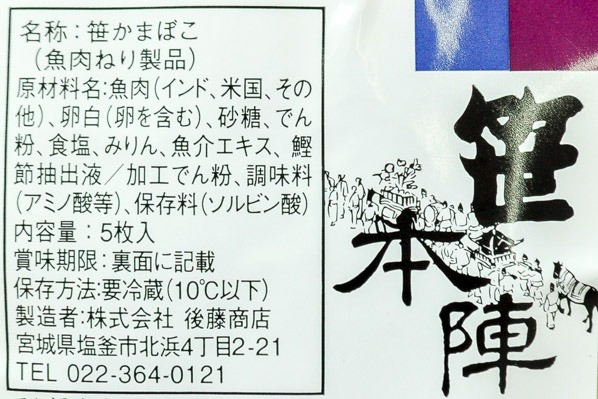 名称：笹かまぼこ
（魚肉ねり製品）
原材料名:魚肉（インド、米国、その
他）、卵白（卵を含む）、砂糖、でん
粉、食塩、みりん、魚介エキス、鰹
節抽出液／加工でん粉、調味料
（アミノ酸等）、保存料（ソルビン酸）
内容量：5枚入
賞味期限：裏面に記載
保存方法:要冷蔵（10℃以下）
製造者:株式会社 後藤商店
宮城県塩釜市北浜4丁目2-21
TEL 022-364-0121
笹
本
陣